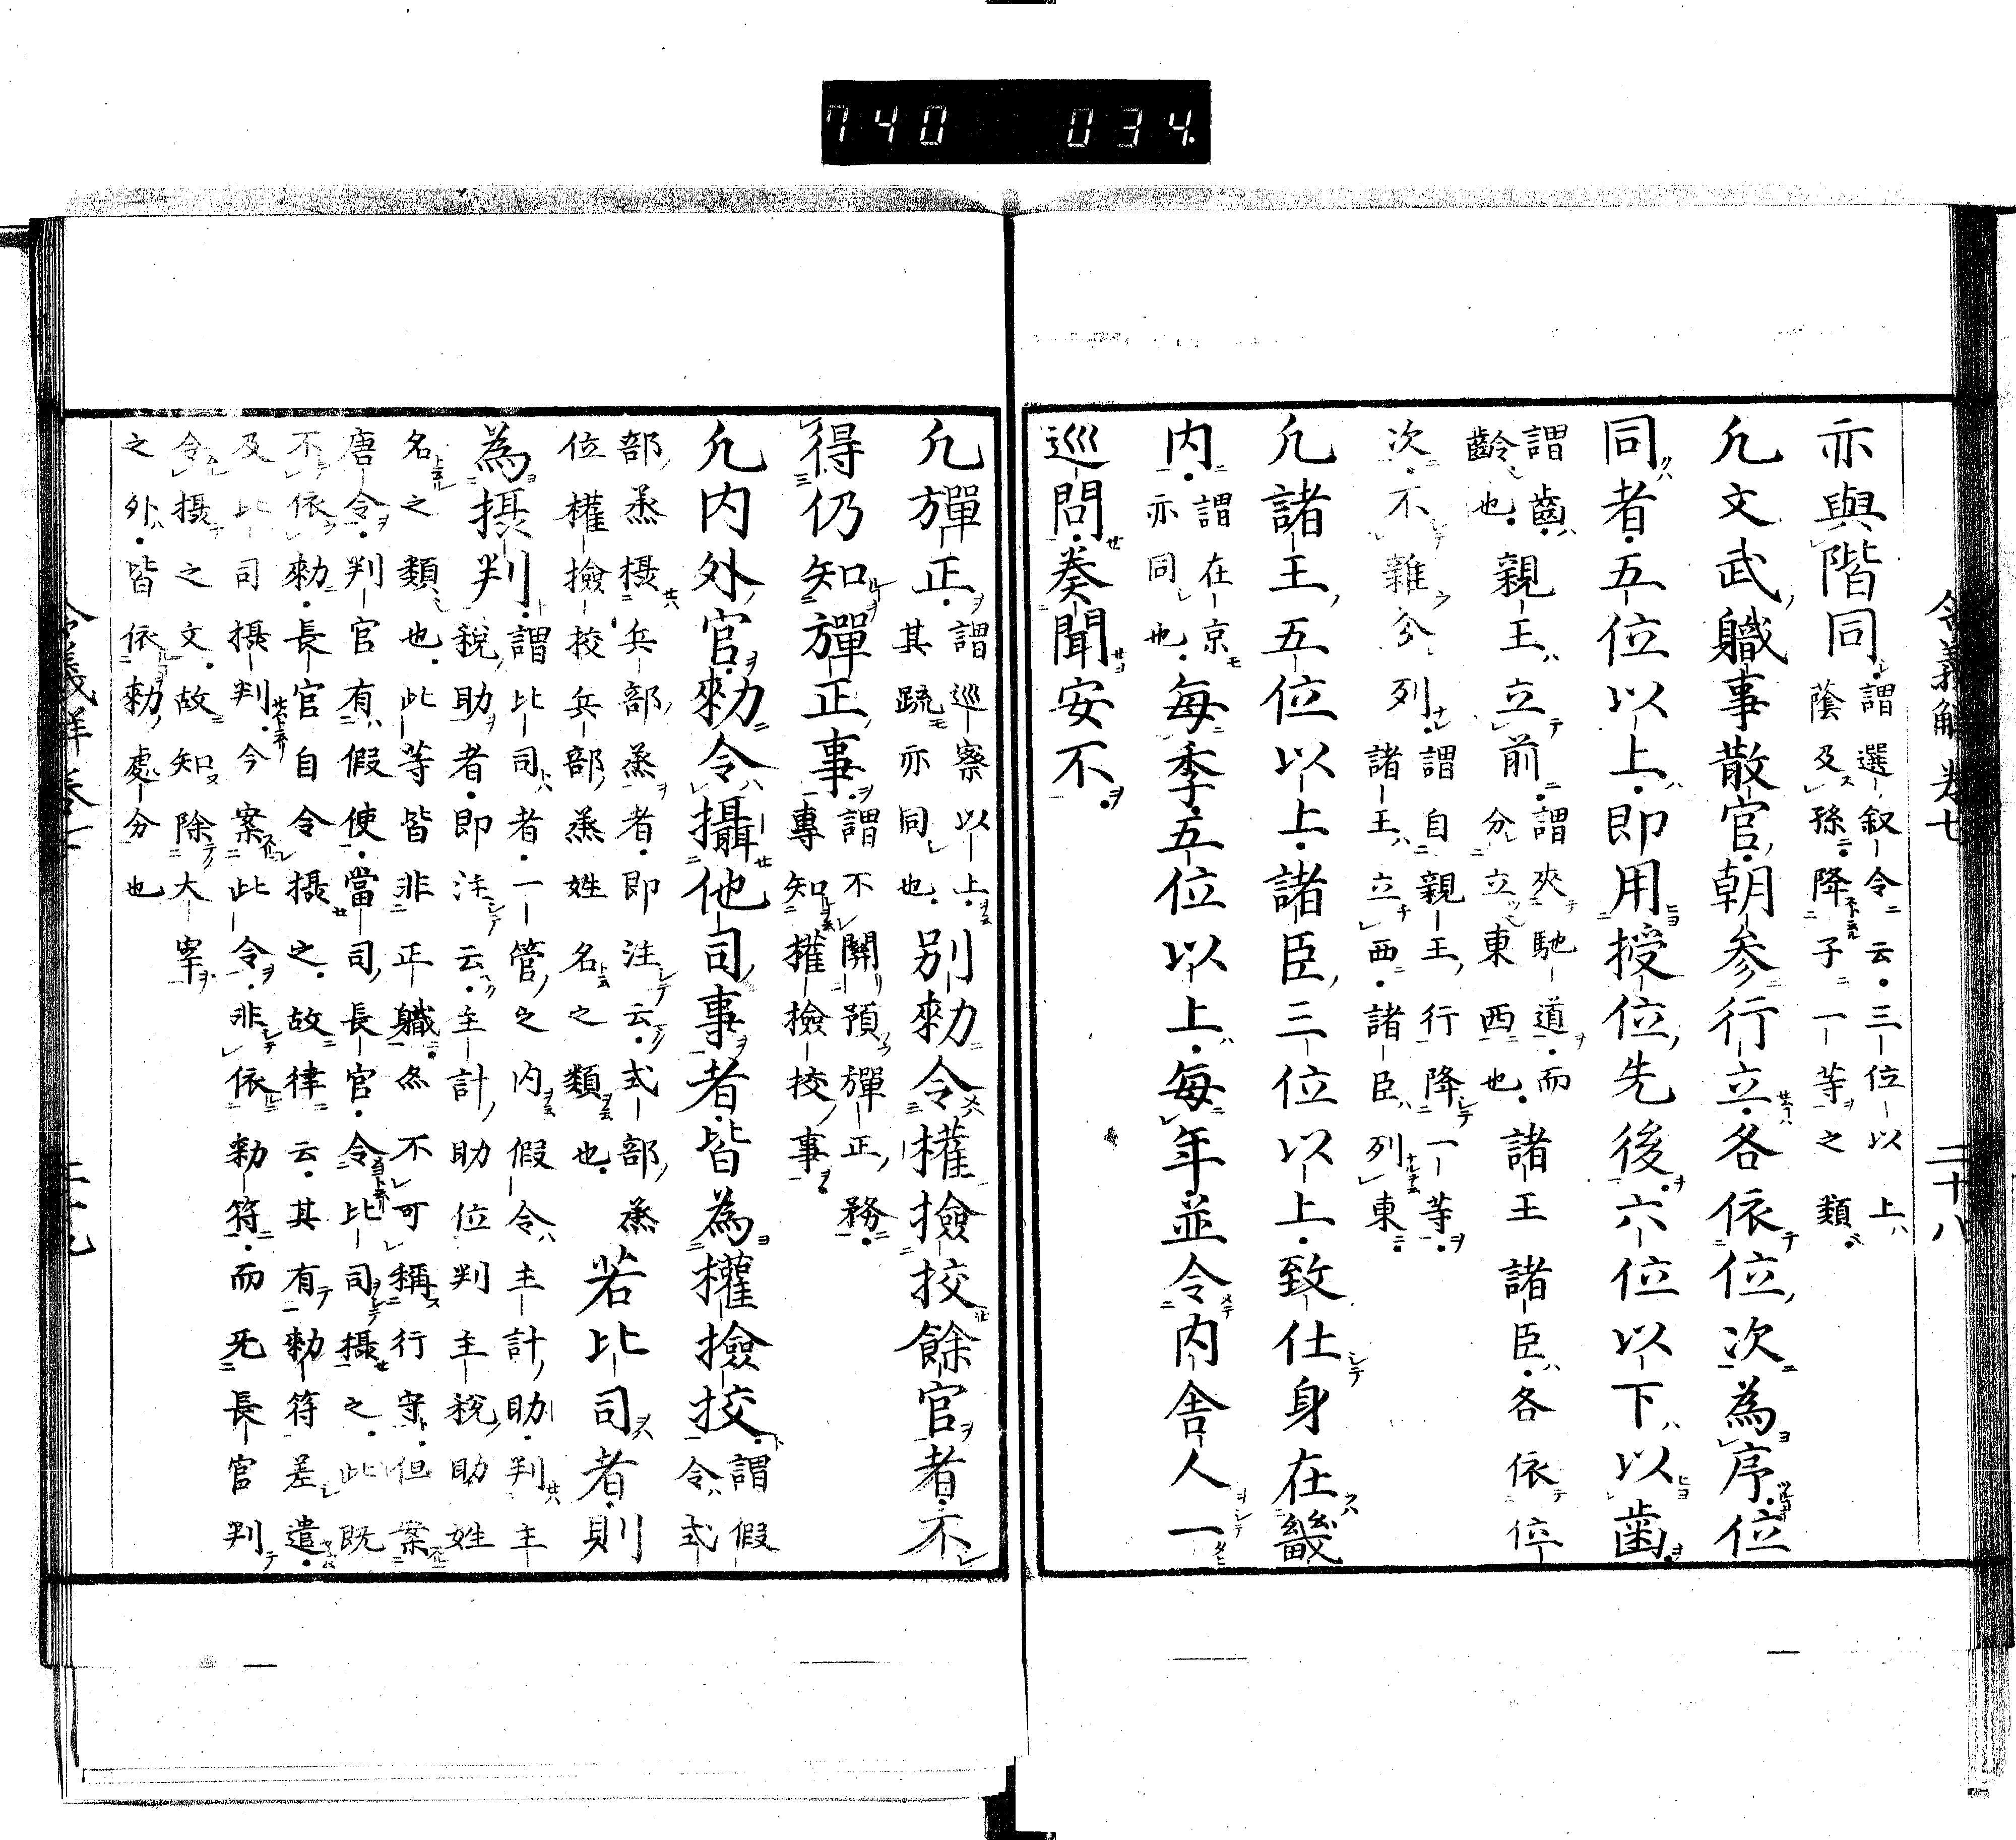 740 034
令義解 卷七 二十八
亦與階同謂選叙令云三位以上
蔭及孫降子一等之類
凡文武職事散官朝参行立各依位次為序位
同者五位以上即用授位先後六位以下以齒
謂齒
齡也親王立前謂夾馳道而
分立東西也諸王諸臣各依位
次不雜分列謂自親王行降一等
諸王立西諸臣列東
凡諸王五位以上諸臣三位以上致仕身在畿
内謂在京
亦同也每季五位以上每年並令内舎人一
巡問奏聞安不
凡彈正謂巡察以上
其疏亦同也別勑令權撿挍餘官者不
得仍知彈正事謂不關預彈正務
專知權撿挍事
凡内外官勑令攝他司事者皆為權撿挍謂假
令式
部蒸摂兵部蒸者即注云式部蒸
位權撿挍兵部蒸姓名之類也若比司者則
為摂判謂比司者一管之内假令主計助判主
税助者即注云主計助位判主税助姓
名之類也此等皆非正職不可稱行守但案
唐令判官有假使當司長官令比司摂之此既
不依勑長官自令摂之故律云其有勑符差遣
及比司摂判今案此令非依勑符而死長官判
令摂之文故知除大宰
之外皆依勑處分也